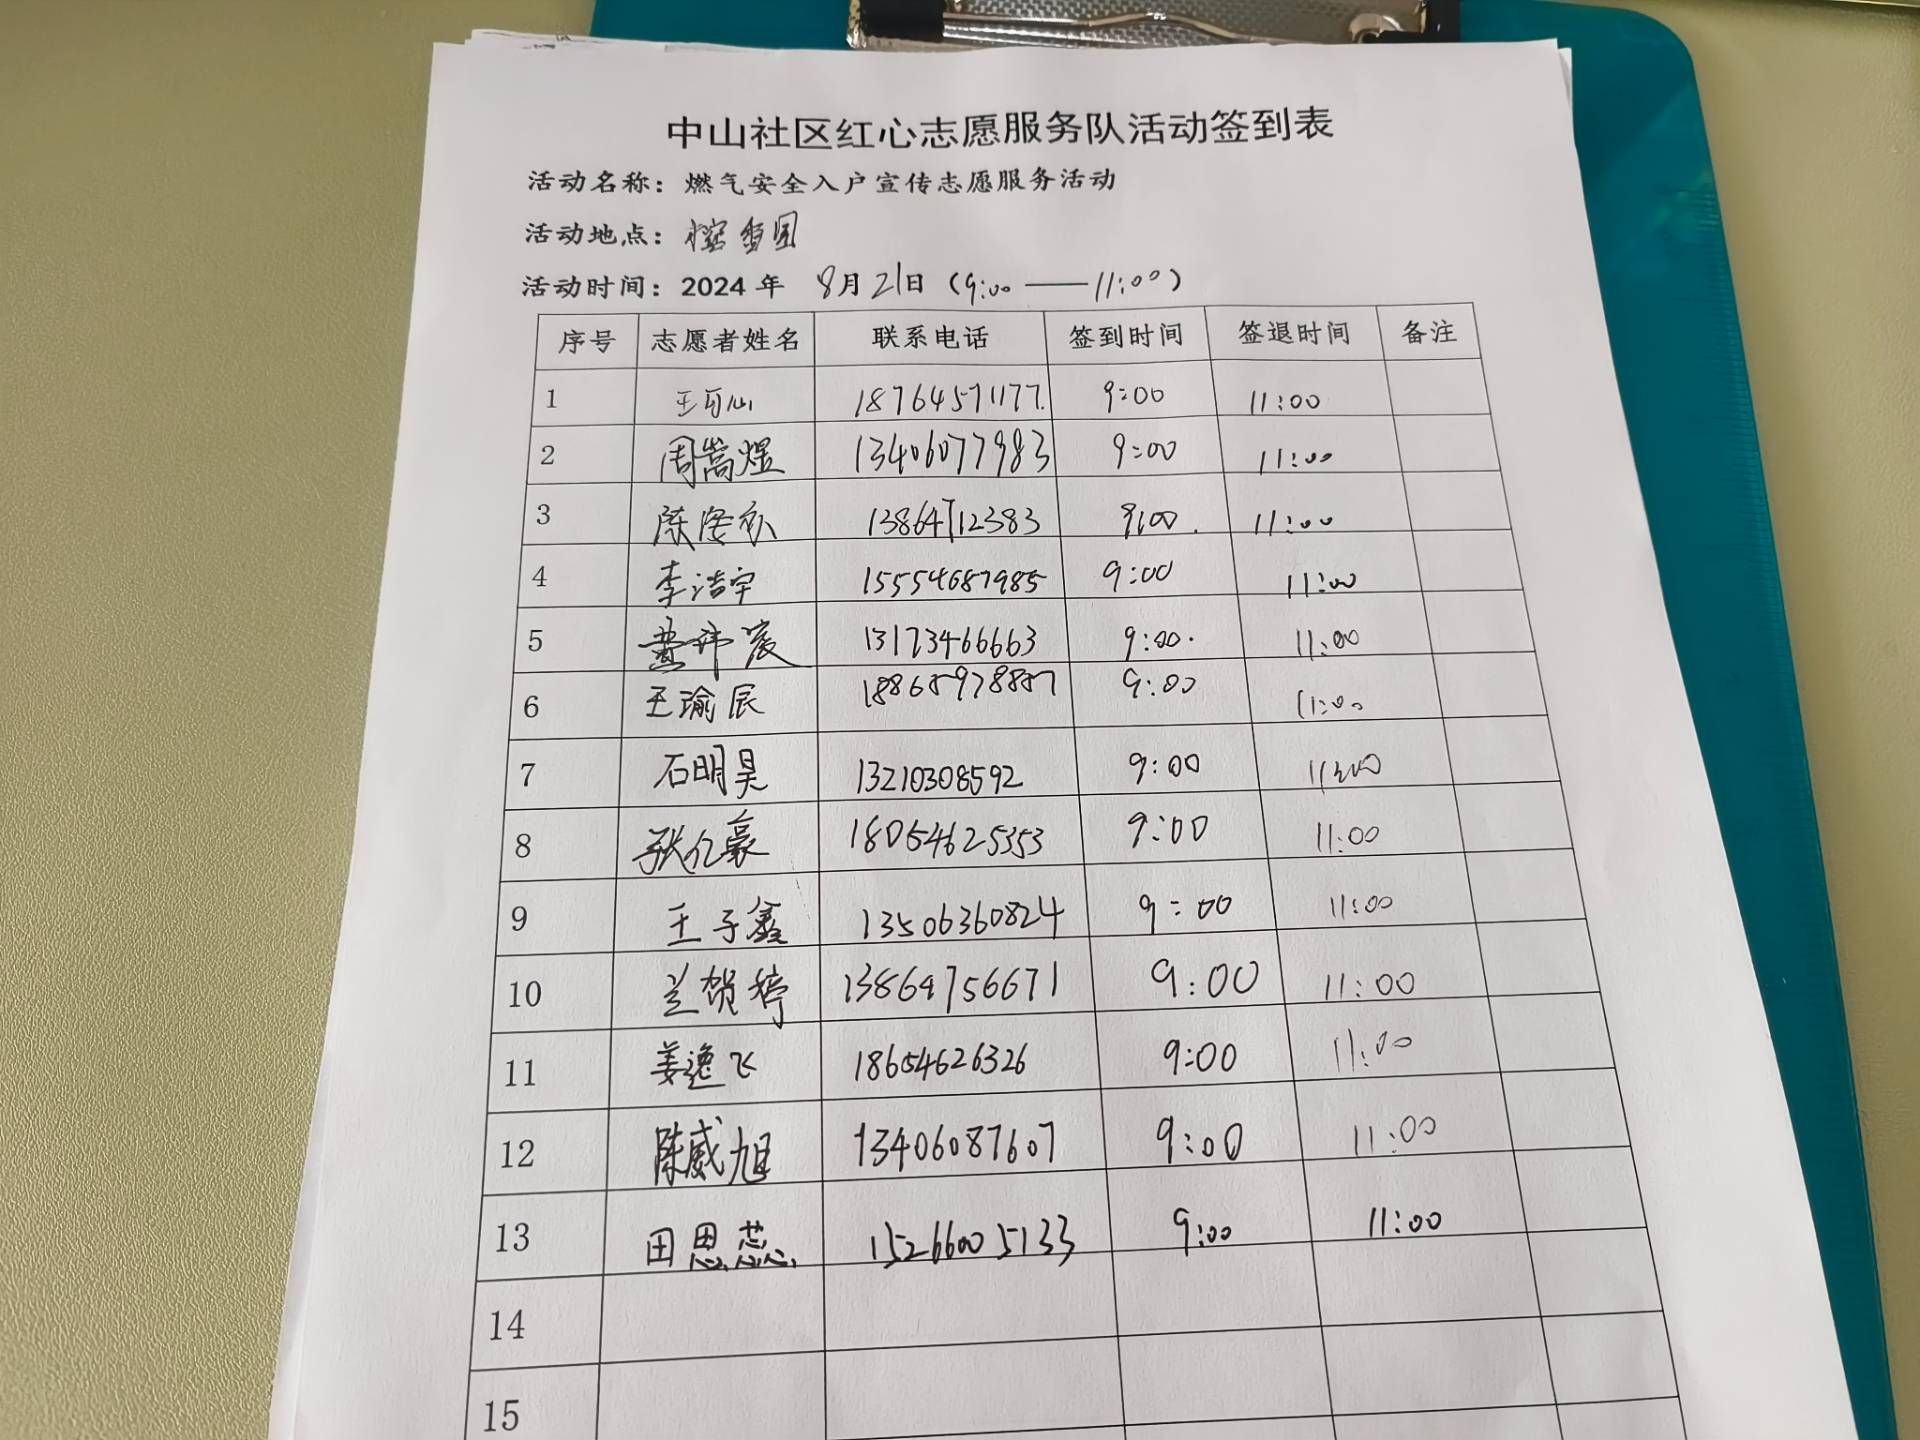 中山社区红心志愿服务队活动签到表
活动名称：燃气安全入户宣传志愿服务活动
活动地点：榕香园
活动时间：2024年 8月21日（9:00——11:00）
序号 志愿者姓名 联系电话 签到时间 签退时间 备注
1 王可心 18764571177. 9:00 11:00
2 周嵩煜 13406077983 9:00 11:00
3 陈 13864712383 9:00. 11:00
4 李洁宇 15554687985 9:00 11:00
5 13173466663 9:00. 11:00
6 王瑜辰 18865978887 9:00 11:00
7 石明昊 13210308592 9:00 11:00
8 张亿豪 18054625353 9:00 11:00
9 王子鑫 13506360824 9:00 11:00
10 兰贺婷 13864756671 9:00 11:00
11 姜逸飞 18654626326 9:00 11:00
12 陈威旭 13406087607 9:00 11:00
13 田思蕊 15266005133 9:00 11:00
14
15